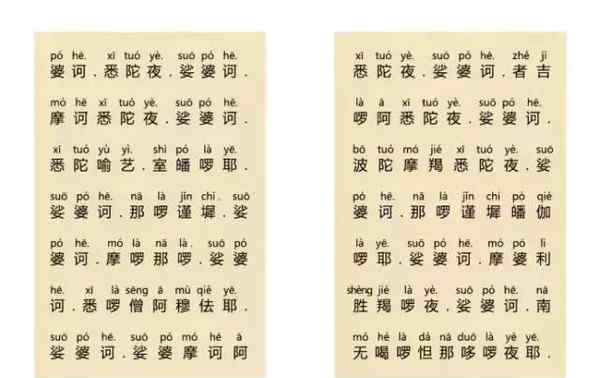 pó hē. xī tuó yè. suō pó hē.
婆诃.悉陀夜.娑婆诃.
mó hē xī tuó yè. suō pó hē.
摩诃悉陀夜.娑婆诃.
xī tuó yù yì. shì pó là yē.
悉陀喻艺.室皤啰耶.
suō pó hē. nā là jǐn chí. suō
娑婆诃.那啰谨墀.娑
pó hē. mó là nā là. suō pó
婆诃.摩啰那啰.娑婆
hē. xī là sēng ā mù qié yē.
诃.悉啰僧阿穆佉耶.
suō pó hē. suō pó mó hē ā
娑婆诃.娑婆摩诃阿
xī tuó yè. suō pó hē. zhě jí
悉陀夜.娑婆诃.者吉
là ā xī tuó yè. suō pó hē.
啰阿悉陀夜.娑婆诃.
bō tuó mó jié xī tuó yè. suō
波陀摩羯悉陀夜.娑
pó hē. nā là jǐn chí pó qié
婆诃.那啰谨墀皤伽
là yē. suō pó hē. mó pó lì
啰耶.娑婆诃.摩婆利
shèng jié là yè. suō pó hē. nā
胜羯啰夜.娑婆诃.南
mó hé là dá nā duō là yè yē.
无喝啰怛那哆啰夜耶.